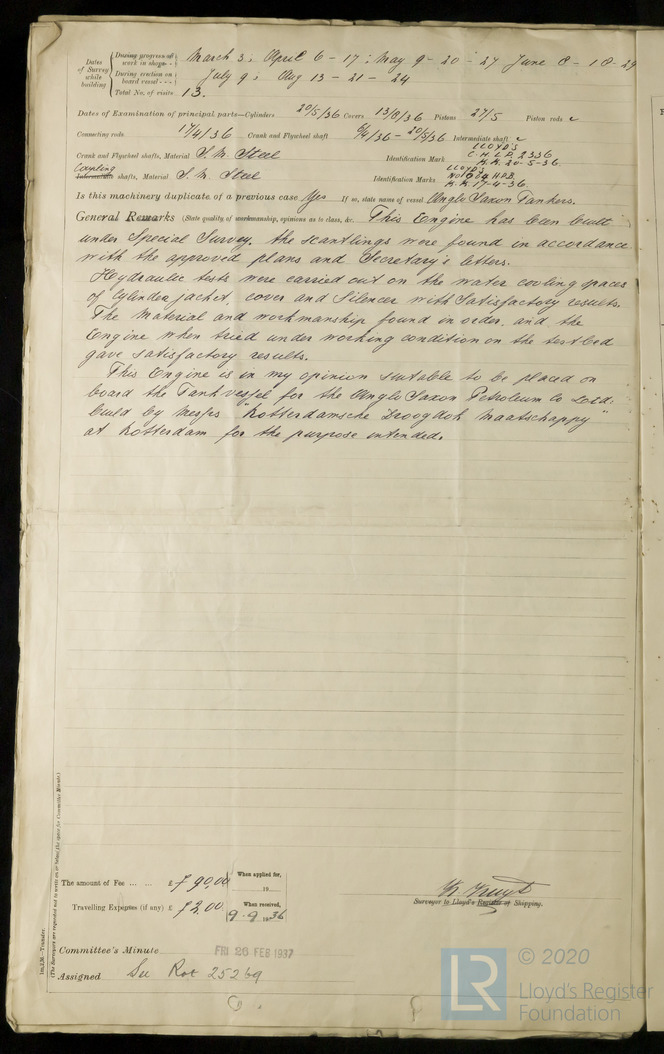 Dates of Survey while building
During progress of work in shops - - March 3; April 6 - 17; May 9 - 20 - 27 June 8 - 18 - 29
During erection on board vessel - - - July 9; Aug 13 - 21 - 24
Total No. of visits 13.
Dates of Examination of principal parts—Cylinders 20/5/36 Covers 13/8/36 Pistons 27/5 Piston rods
Connecting rods 17/4/36 Crank and Flywheel shaft 6/4/36 - 20/5/36 Intermediate shaft
Crank and Flywheel shafts, Material S. M. Steel Identification Mark LLOYD'S C.H.L.P. 2336 K.K. 20-5-36
Coupling Intermediate shafts, Material S. M. Steel Identification Marks LLOYD'S H.P.B. K.K. 17-4-36.
Is this machinery duplicate of a previous case Yes If so, state name of vessel Anglo Saxon Tankers.
General Remarks (State quality of workmanship, opinions as to class, &c. This Engine has been built
under Special Survey, the scantlings were found in accordance
with the approved plans and Secretary's letters.
Hydraulic tests were carried out on the water cooling spaces
of Cylinder jacket, cover and Silencer with Satisfactory results.
The Material and workmanship found in order, and the
Engine when tried under working condition on the testbed
gave satisfactory results.
This Engine is in my opinion suitable to be placed on
board the Tankvessel for the Anglo Saxon Petroleum Co Ltd.
build by Messrs "Rotterdamsche Droogdok Maatschappy"
at Rotterdam for the purpose intended.
1m.8.30.—Transfer.
(The Surveyors are requested not to write on or below the space for Committee's Minute.)
The amount of Fee ... ... £ f 90,00 When applied for, 19
Travelling Expenses (if any) £ f 2.00. When received, 9.9.1936
K. Kruyt
Surveyor to Lloyd's Register of Shipping.
Committee's Minute FRI 26 FEB 1937
Assigned See Rot 25269
LR
© 2020
Lloyd's Register
Foundation